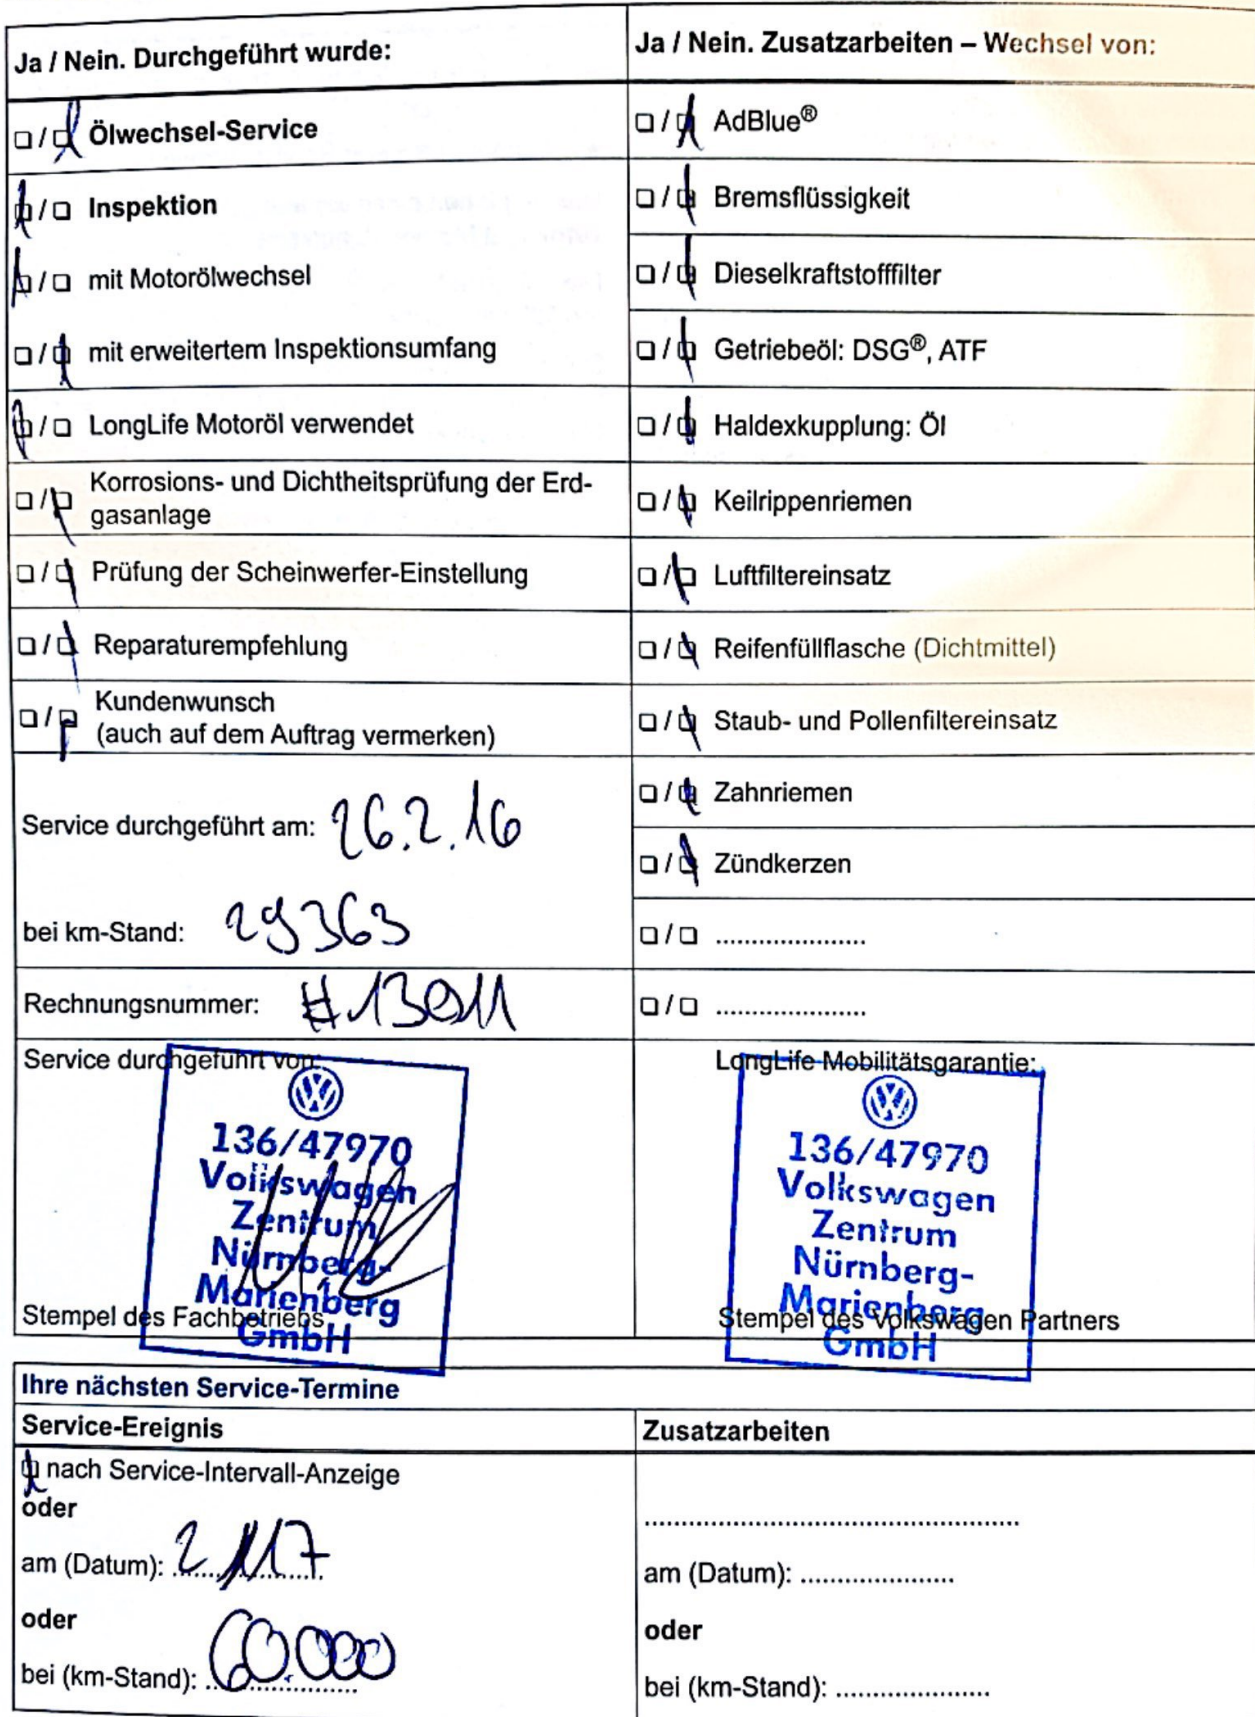 Ja / Nein. Durchgeführt wurde:
☐ / ☒ Ölwechsel-Service
☒ / ☐ Inspektion
☒ / ☐ mit Motorölwechsel
☐ / ☒ mit erweitertem Inspektionsumfang
☒ / ☐ LongLife Motoröl verwendet
☐ / ☒ Korrosions- und Dichtheitsprüfung der Erd-
gasanlage
☐ / ☒ Prüfung der Scheinwerfer-Einstellung
☐ / ☒ Reparaturempfehlung
☐ / ☒ Kundenwunsch
(auch auf dem Auftrag vermerken)
Service durchgeführt am: 26.2.16
bei km-Stand: 29363
Rechnungsnummer:
Service durchgeführt von:
136/47970
Volkswagen
Zentrum
Nürnberg-
Marienberg
GmbH
Stempel des Fachbetriebs
Ja / Nein. Zusatzarbeiten – Wechsel von:
☐ / ☒ AdBlue®
☐ / ☒ Bremsflüssigkeit
☐ / ☒ Dieselkraftstofffilter
☐ / ☒ Getriebeöl: DSG®, ATF
☐ / ☒ Haldexkupplung: Öl
☐ / ☒ Keilrippenriemen
☐ / ☒ Luftfiltereinsatz
☐ / ☒ Reifenfüllflasche (Dichtmittel)
☐ / ☒ Staub- und Pollenfiltereinsatz
☐ / ☒ Zahnriemen
☐ / ☒ Zündkerzen
☐ / ☐ .....................
☐ / ☐ .....................
LongLife Mobilitätsgarantie:
136/47970
Volkswagen
Zentrum
Nürnberg-
Marienberg
GmbH
Stempel des Volkswagen Partners
Ihre nächsten Service-Termine
Service-Ereignis
☒ nach Service-Intervall-Anzeige
oder
am (Datum):
oder
bei (km-Stand): 60.000
Zusatzarbeiten
....................................................
am (Datum): .....................
oder
bei (km-Stand): .....................